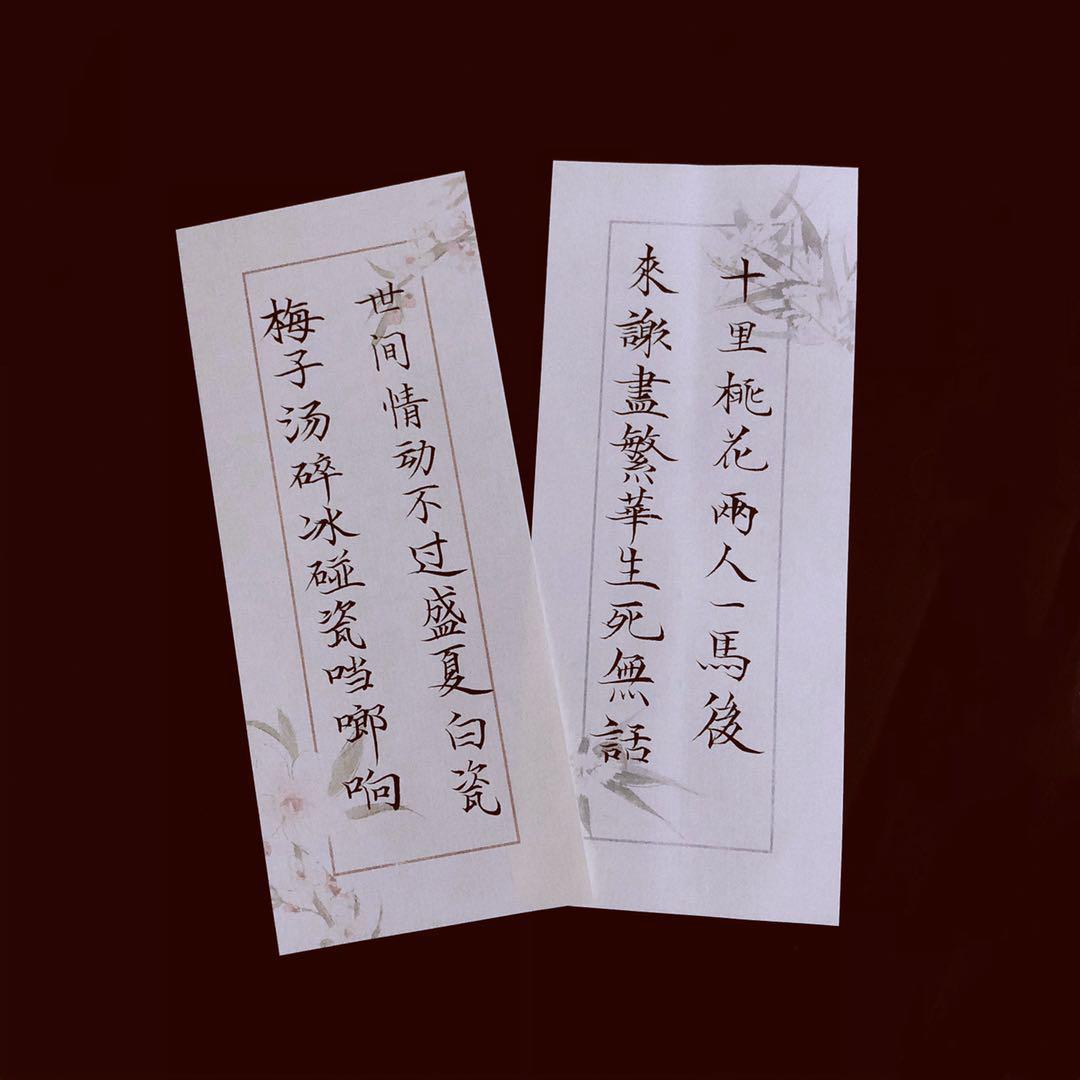 十里桃花兩人一馬後
來謝盡繁華生死無話
世间情动不过盛夏白瓷
梅子汤碎冰碰瓷啷啷响